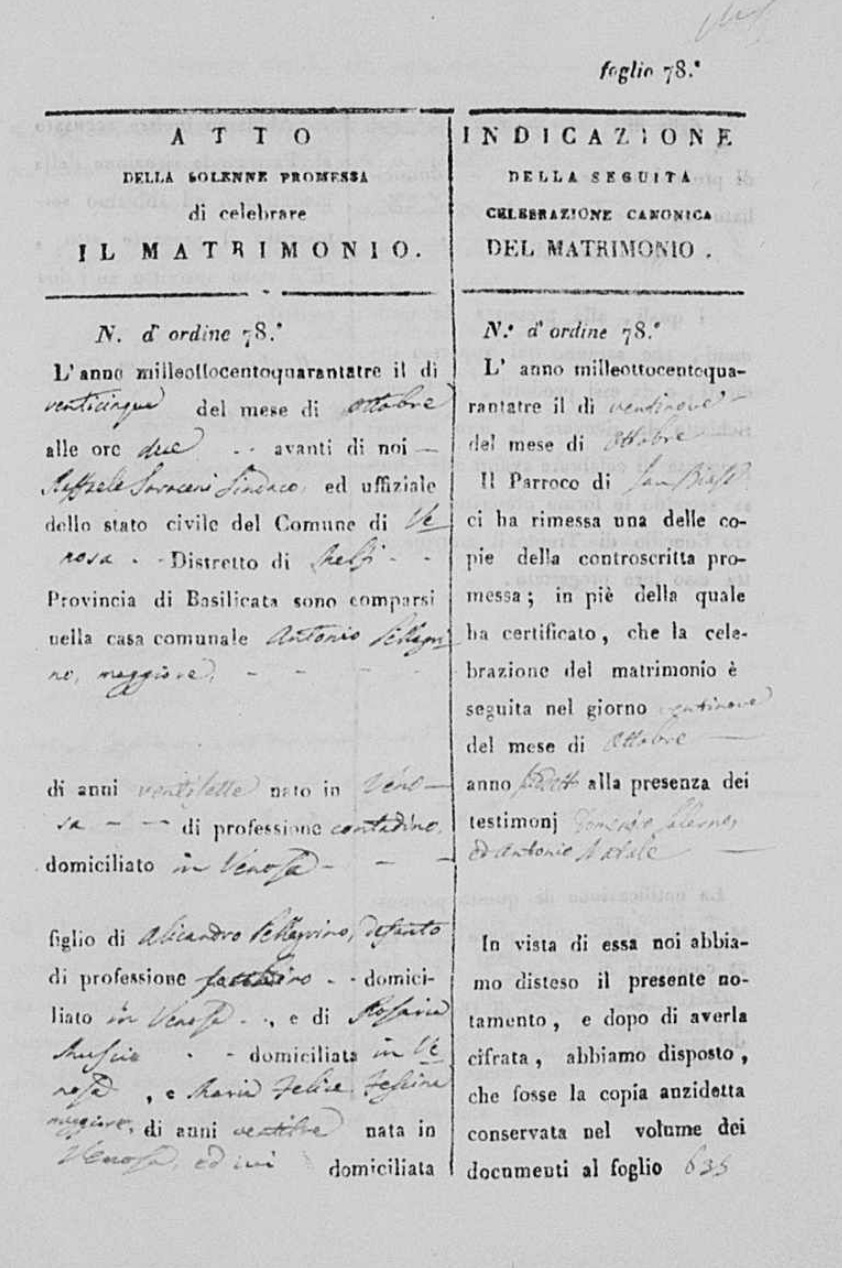 foglio 78.°
ATTO
DELLA SOLENNE PROMESSA
di celebrare
IL MATRIMONIO.
N. d' ordine 78.°
L' anno milleottocentoquarantatre il di
venticinque del mese di Ottobre
alle ore due avanti di noi
Raffaele Saraceni Sindaco, ed uffiziale
dello stato civile del Comune di Ve
nosa Distretto di Melfi
Provincia di Basilicata sono comparsi
nella casa comunale Antonio Pellegri
no, maggiore,
di anni ventisette nato in Veno
sa di professione contadino,
domiciliato in Venosa
figlio di Alisandro Pellegrino, defunto
di professione domici-
liato in Venosa, e di Rosaria
domiciliata in Ve
nosa, e Maria Felice
maggiore, di anni ventitre nata in
Venosa, ed ivi domiciliata
INDICAZIONE
DELLA SEGUITA
CELEBRAZIONE CANONICA
DEL MATRIMONIO.
N.° d' ordine 78.°
L' anno milleottocentoqua-
rantatre il di ventinove
del mese di Ottobre
Il Parroco di San Biase
ci ha rimessa una delle co-
pie della controscritta pro-
messa; in piè della quale
ha certificato, che la cele-
brazione del matrimonio è
seguita nel giorno ventinove
del mese di Ottobre
anno alla presenza dei
testimonj
ed Antonio Natale
In vista di essa noi abbia-
mo disteso il presente no-
tamento, e dopo di averla
cifrata, abbiamo disposto,
che fosse la copia anzidetta
conservata nel volume dei
documenti al foglio 635